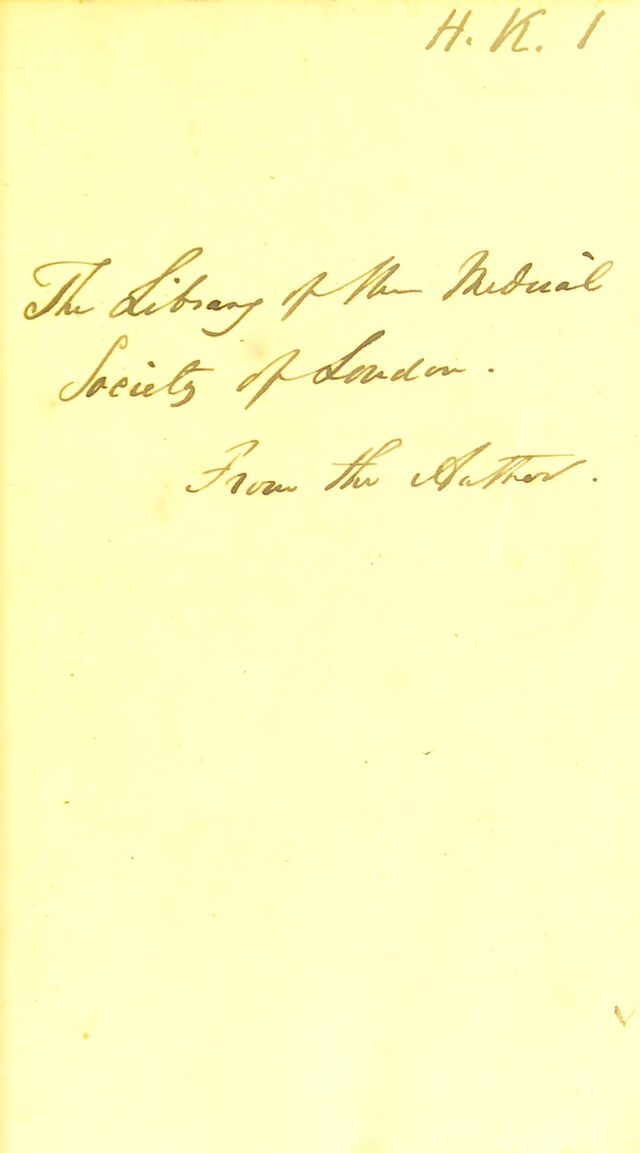 H. K. 1
The Library of the Medical
Society of London.
From the Author.